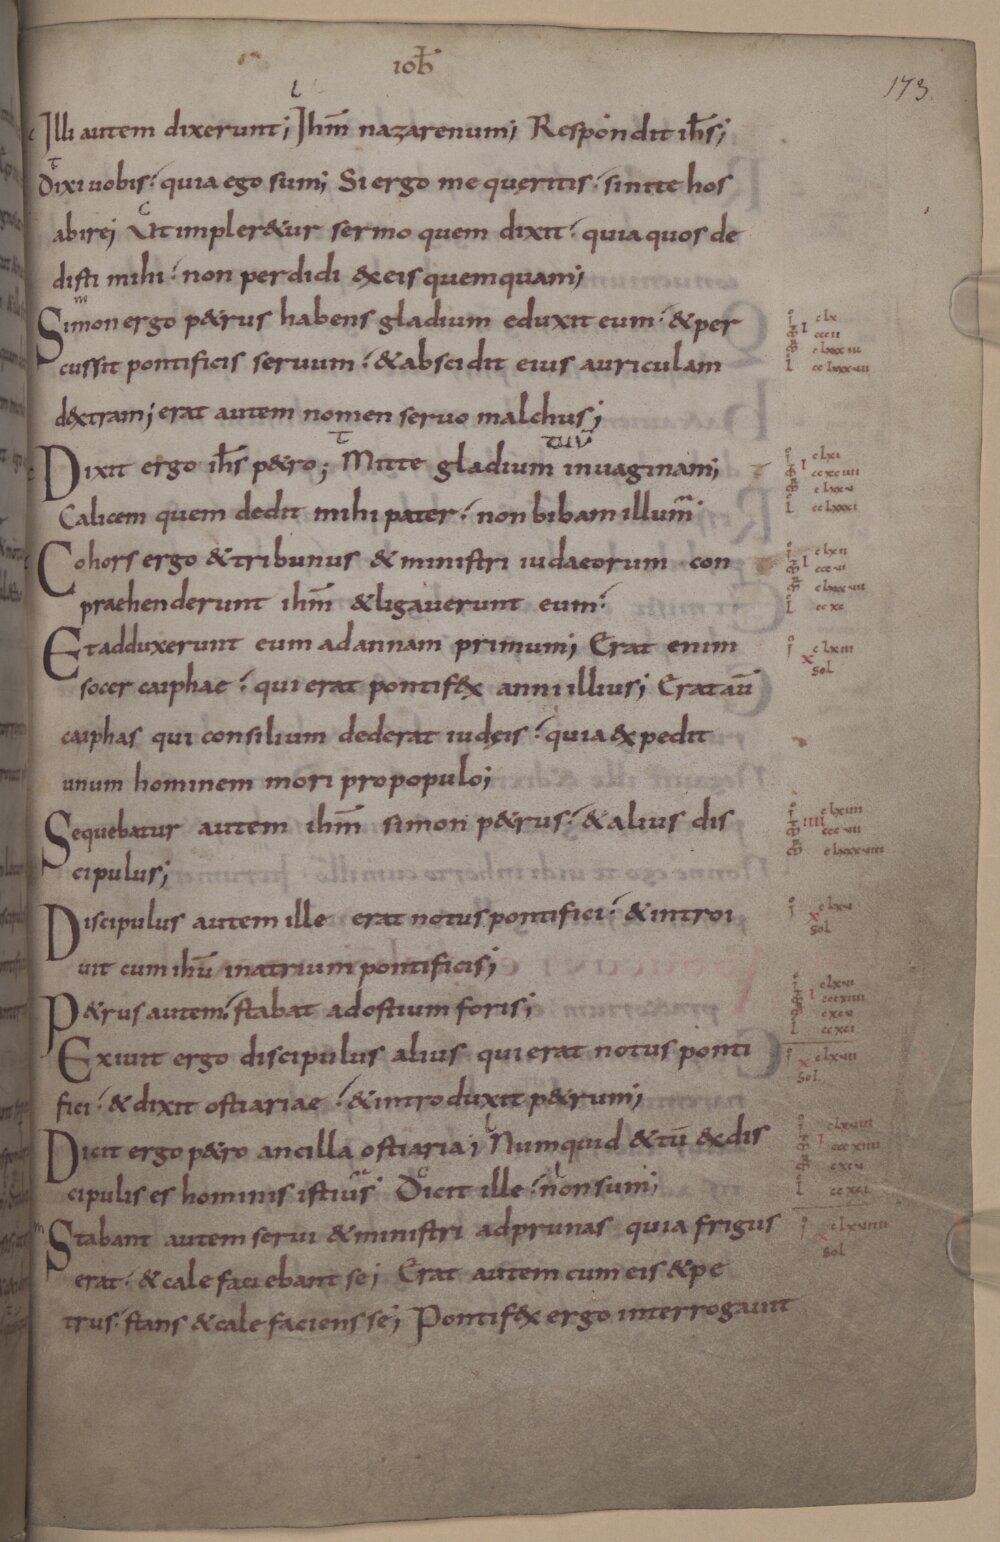 ioħ
173
Illi autem dixerunt; Ihm̄ nazarenum; Respondit ih̄s;
Dixi uobis; quia ego sum; Si ergo me queritis; sinite hos
abire; Ut impler&ur sermo quem dixit; quia quos de
disti mihi; non perdidi exeis quemquam;
Simon ergo p&rus habens gladium eduxit eum; & per
cussit pontificis seruum; & abscidit eius auriculam
dextram; erat autem nomen seruo malchus;
Dixit ergo ih̄s p&ro; Mitte gladium inuaginam;
Calicem quem dedit mihi pater; non bibam illum;
Cohors ergo & tribunus & ministri iudaeorum con
praehenderunt ihm̄ & ligauerunt eum;
Et adduxerunt eum ad annam primum; Erat enim
socer caiphae; qui erat pontifex anni illius; Erat aū
caiphas qui consilium dederat iudęis; quia expedit
unum hominem mori pro populo;
Sequebatur autem ihm̄ simon p&rus; & alius dis
cipulus;
Discipulus autem ille erat notus pontifici; & introi
uit cum ihū inatrium pontificis;
P&rus autem; stabat ad ostium foris;
Exiuit ergo discipulus alius qui erat notus ponti
fici; & dixit ostiariae; & introduxit p&rum;
Dicit ergo p&ro ancilla ostiaria; Numquid & tū exdis
cipulis es hominis istius; Dicit ille; non sum;
Stabant autem serui & ministri ad prunas quia frigus
erat; & calefaciebant se; Erat autem cum eis & pe
trus; stans & calefaciens se; Pontifex ergo interrogauit